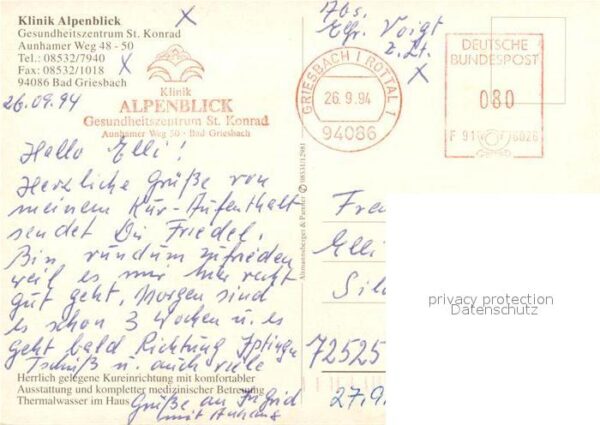 Klinik Alpenblick
Gesundheitszentrum St. Konrad
Aunhamer Weg 48 - 50
Tel.: 08532/7940
Fax: 08532/1018
94086 Bad Griesbach
26.09.94
Klinik
ALPENBLICK
Gesundheitszentrum St. Konrad
Aunhamer Weg 50 · Bad Griesbach
Hallo Elli!
Herzliche Grüße von
meinem Kur-Aufenthalt
sendet Dir Friedel.
Bin rundum zufrieden
weil es mir hier recht
gut geht, Morgen sind
es schon 3 Wochen u. es
geht bald Richtung
Tschüß u. auch viele
Grüße an
mit Anhang
Herrlich gelegene Kureinrichtung mit komfortabler
Ausstattung und kompletter medizinischer Betreuung
Thermalwasser im Haus
Altmannsberger & Partner 08531/12981
Abs.
Voigt
z. Zt.
GRIESBACH I ROTTAL 1
26.9.94
94086
DEUTSCHE
BUNDESPOST
080
F 91 6826
Elli
72525
27.9
privacy protection
Datenschutz